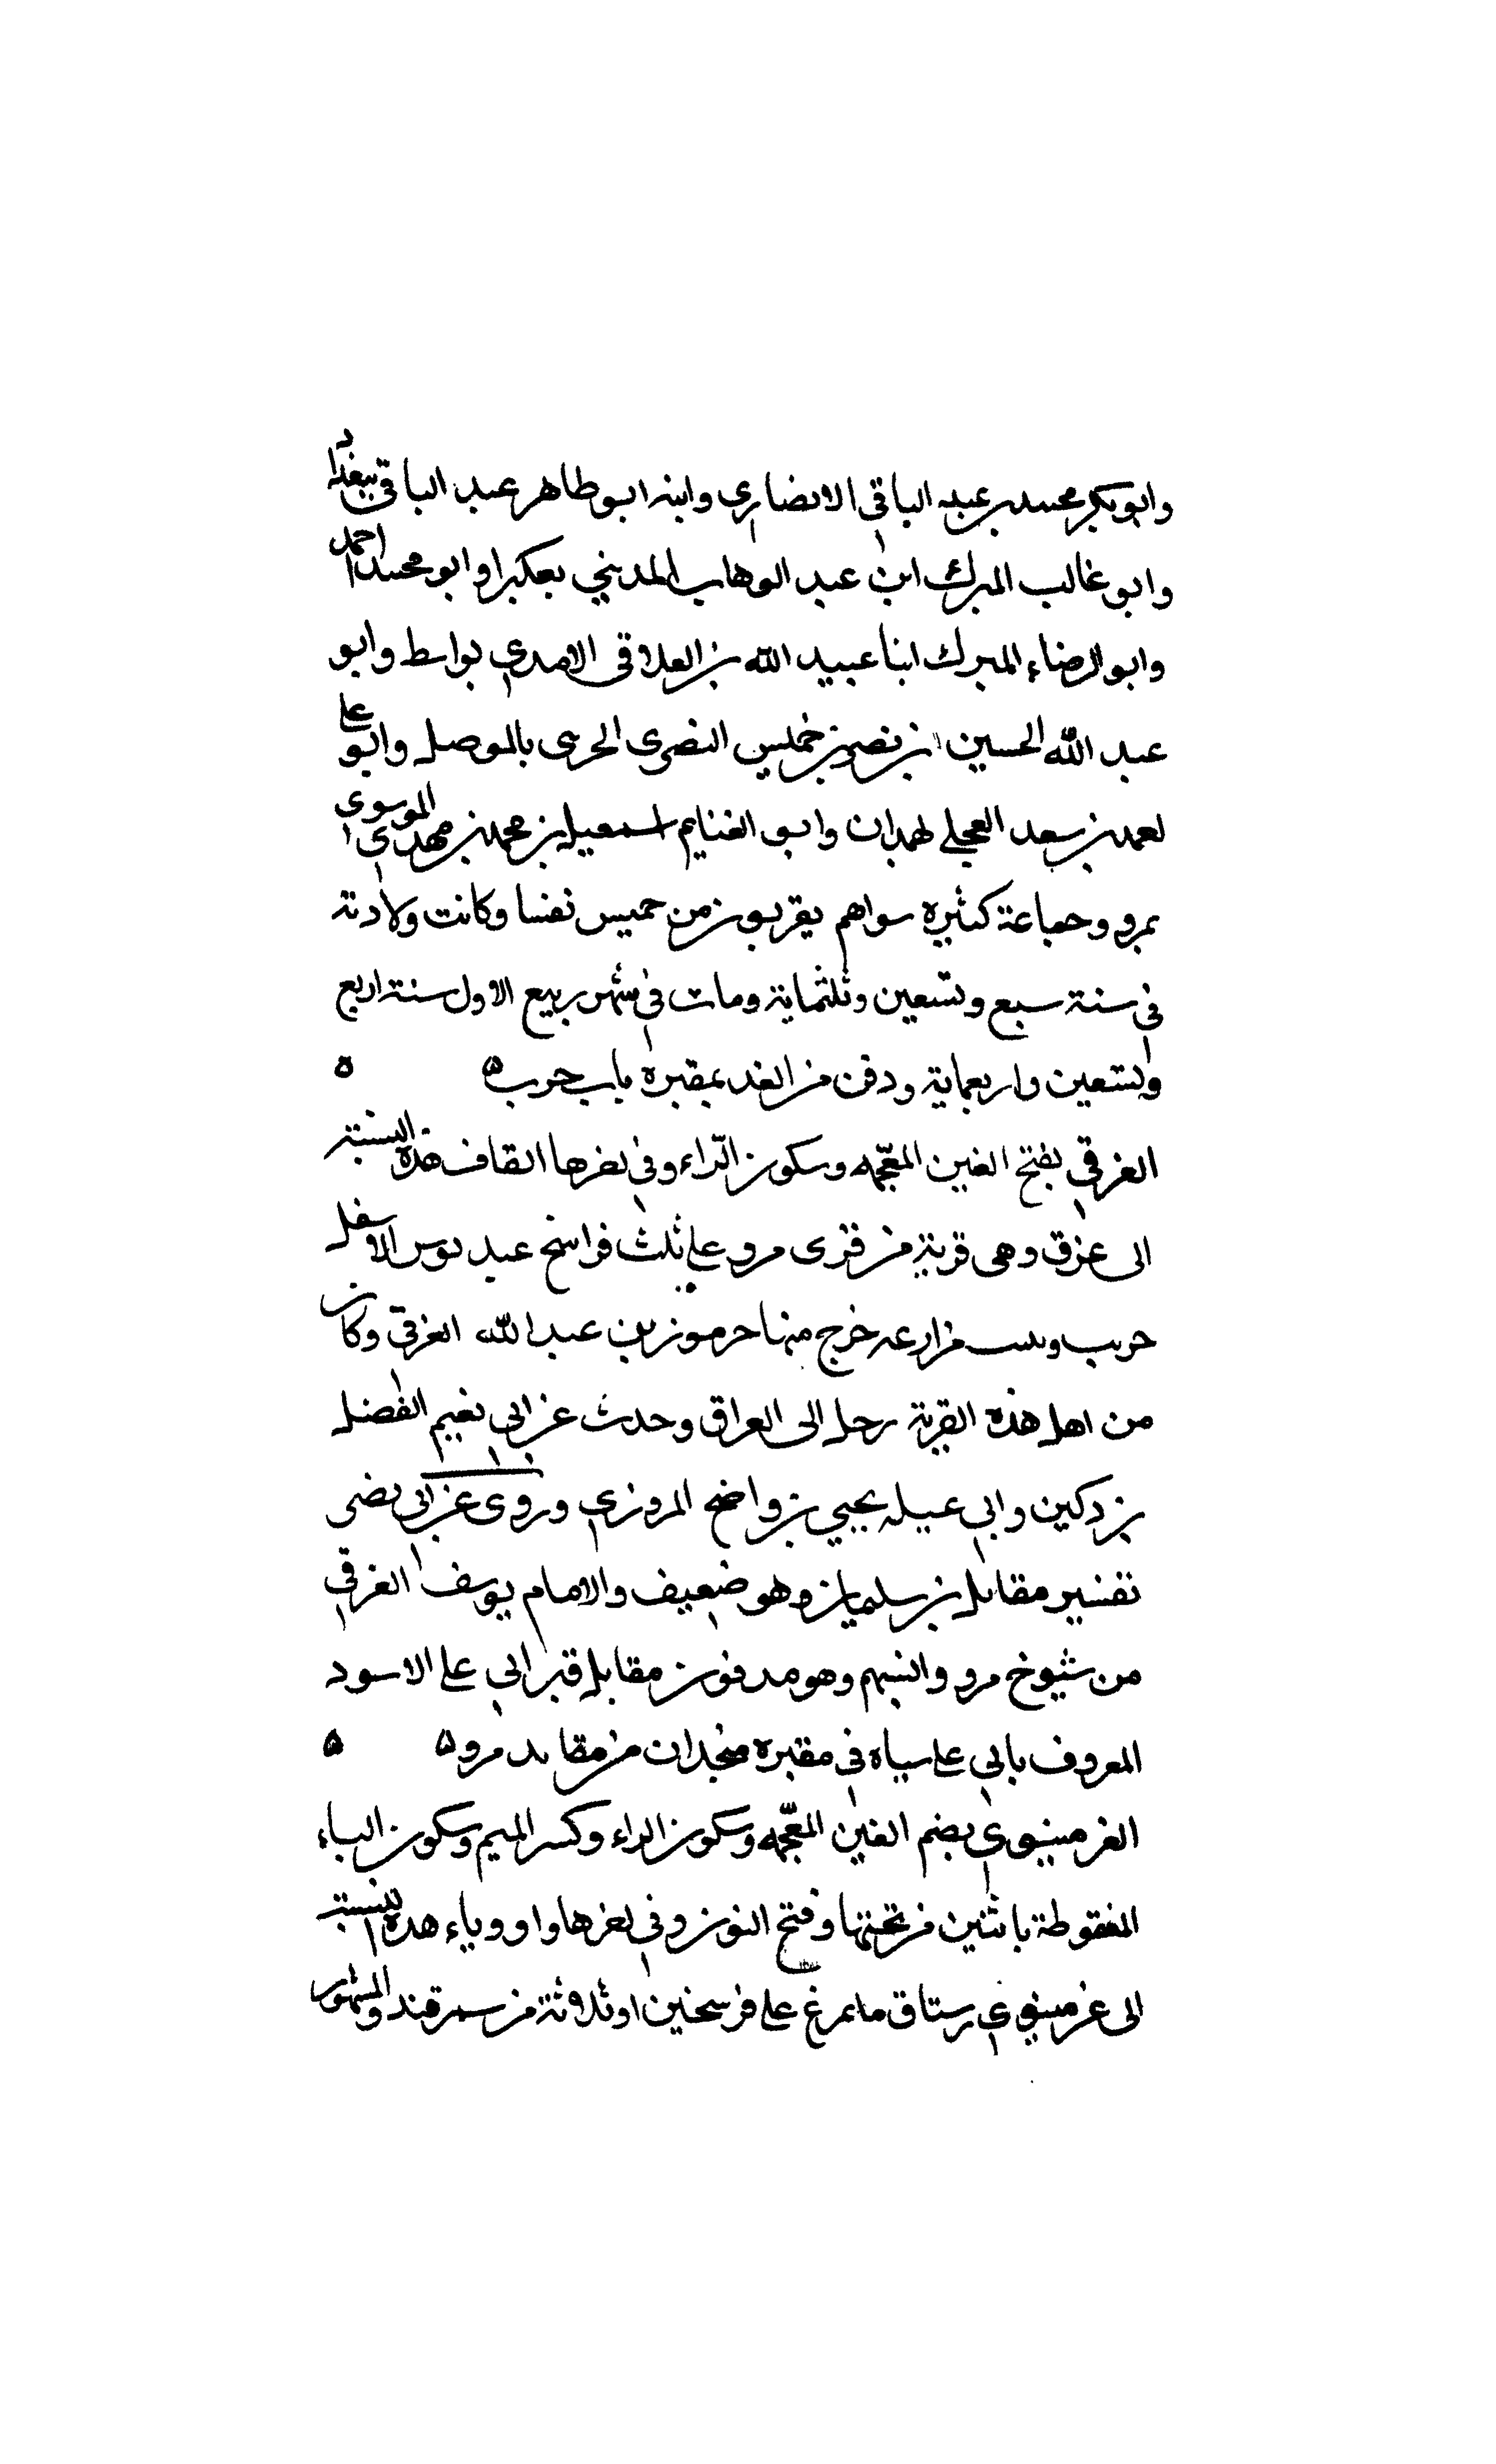 وابو بكر محمد بن عبد الباقي الانصاري وابنه ابو طاهر عبد الباقي ببغداد
وابو غالب المبرك ابن عبد الوهاب المديني بعكبرا وابو محمد احمد
وابو الرضاء المبرك ابنا عبيد الله بن العلاقي الامدي بواسط وابو
عبد الله الحسين بن نصر بن خميس النصرى الحربى بالموصل وابو على
احمد بن سعد العجلي بهمدان وابو الغنايم اسمعيل بن محمد بن مهدي الموسوى
بمرو وجماعة كثيره سواهم يقربون من خمسين نفسا وكانت ولادته
في سنة سبع وتسعين وثلثماية ومات في شهر ربيع الاول سنة اربع
وتسعين واربعماية ودفن من الغد بمقبرة باب حرب ه ه
الغرقي بفتح الغين المعجمه وسكون الرّاء وفي اخرها القاف هذه النسبة
الى غرق وهى قرية من قرى مرو على ثلث فراسخ عبد الاسفل
خربت مزارعه خرج منها جرموز بن عبد الله الغرقي وكان
من اهل هذه القرية رحل الى العراق وحدث عن ابي نعيم الفضل
بن دكين وابي تميلة يحيى بن واضح المروزي وروى عن ابي نضى
تفسير مقاتل بن سليمان وهو ضعيف والامام يوسف الغرقي
من شيوخ مرو وهو مدفون مقابل قبر ابي على الاسود
المعروف بابي على سياه في مقبرة سنجدان من مقابر مرو ه ه
الغرمينوي بضم الغين المعجمة وسكون الراء وكسر الميم وسكون الياء
المنقوطة باثنين من تحتها وفتح النون وفي اخرها واو وياء هذه النسبة
الى غرمينوي رستاق مايمرغ على فرسخين او ثلاثة من سمرقند والمشهور